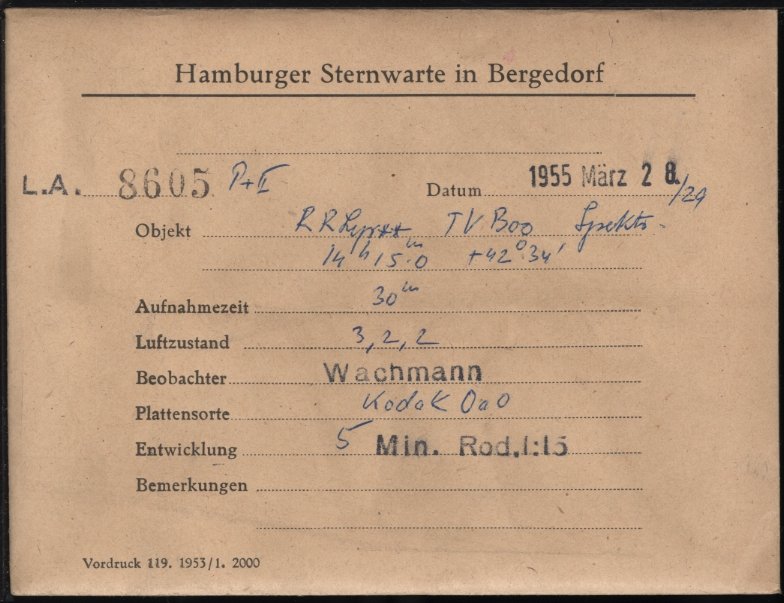 Hamburger Sternwarte in Bergedorf
L.A. 8605 P+II
Datum 1955 März 28./29
Objekt RR Lyr ** TV Boo Spektr.
14h 15m.0 +42° 34'
Aufnahmezeit 30m
Luftzustand 3, 2, 2
Beobachter Wachmann
Plattensorte Kodak OaO
Entwicklung 5 Min. Rod.1:15
Bemerkungen
Vordruck 119. 1953/1. 2000